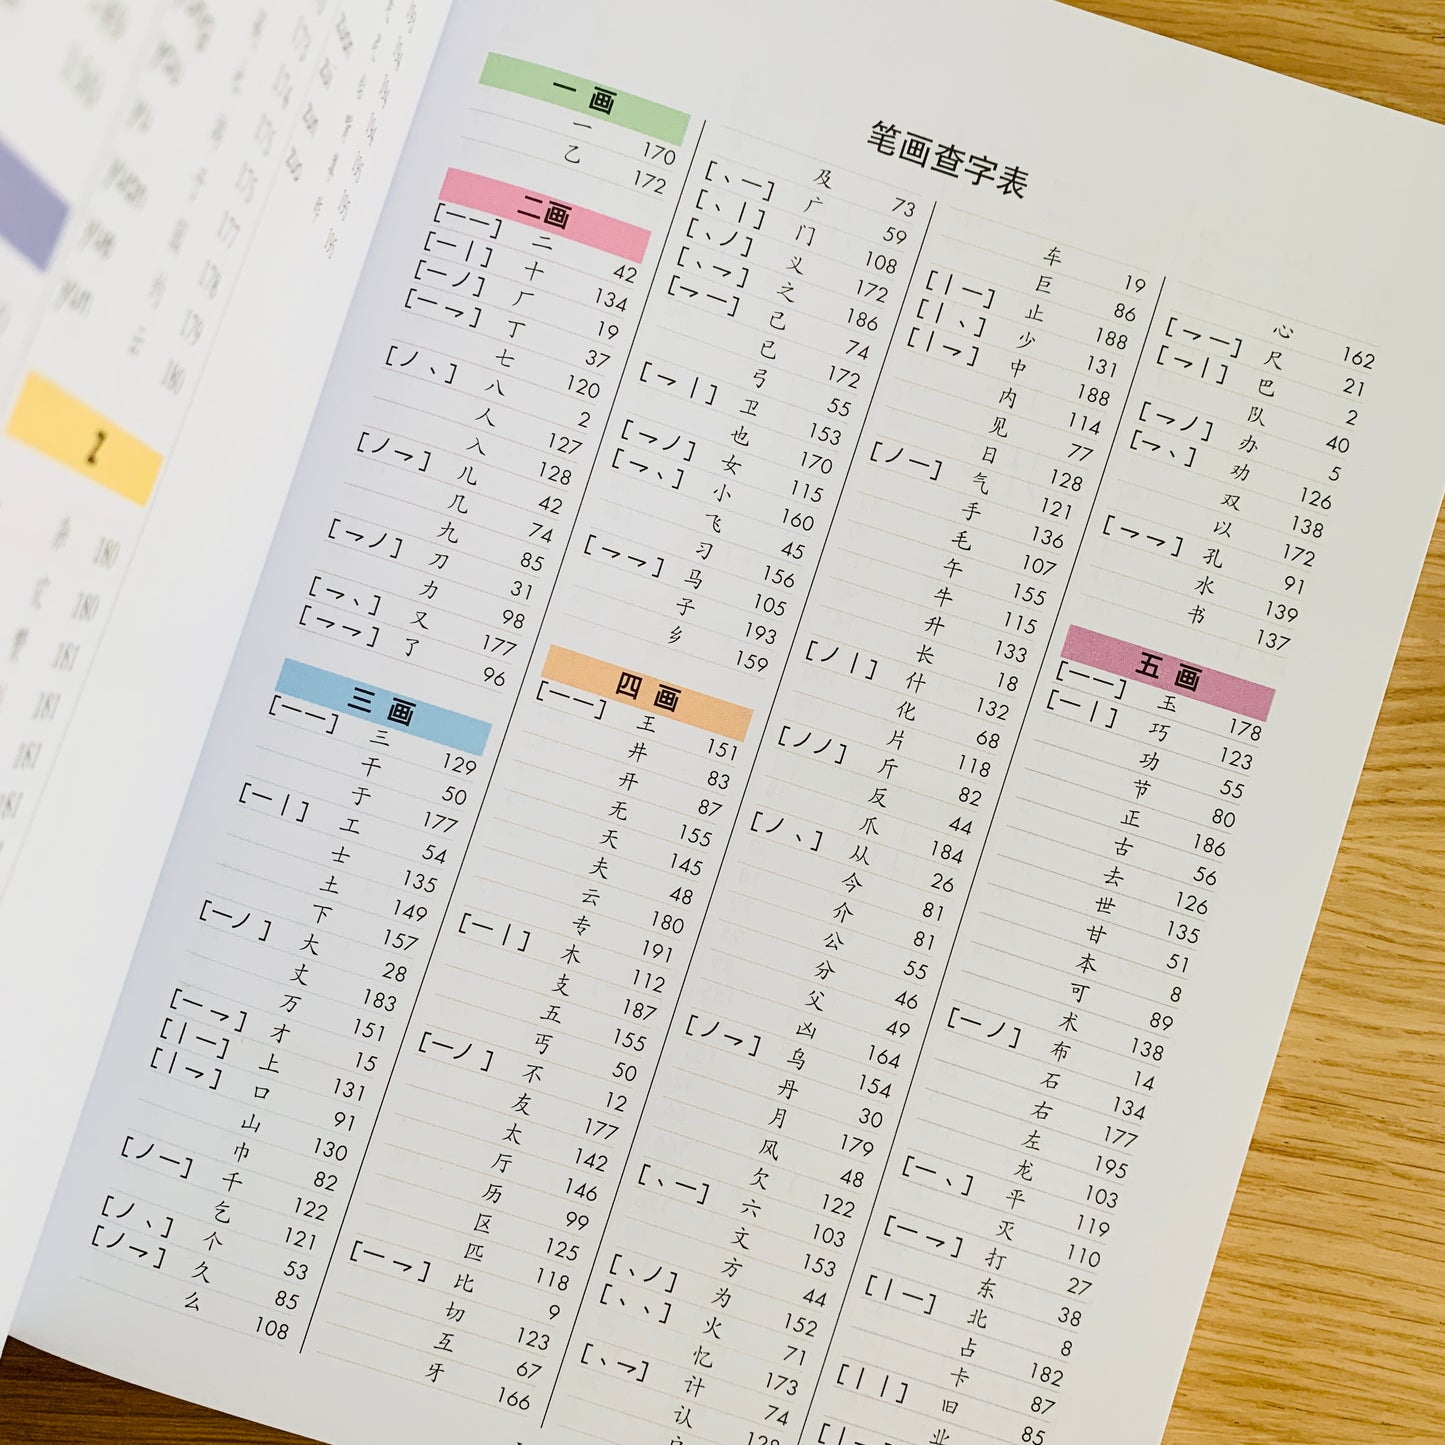 笔画查字表
一画
一 170
乙 172
二画
[一一] 二 42
[一丨] 十 134
[一ノ] 厂 19
[一乛] 丁 37
七 120
[ノ、] 八 2
人 127
入 128
[ノ乛] 儿 42
几 74
九 85
[乛ノ] 刀 31
力 98
[乛、] 又 177
[乛乛] 了 96
三画
[一一] 三 129
干 50
于 177
[一丨] 工 54
士 135
土 149
下 157
[一ノ] 大 28
丈 183
万 151
[一乛] 才 15
[丨一] 上 131
[丨乛] 口 91
山 130
巾 82
[ノ一] 千 122
乞 121
[ノ、] 个 53
[ノ乛] 久 85
么 108
及 73
[、一] 广 59
[、丨] 门 108
[、ノ] 义 172
[、乛] 之 186
[乛一] 己 74
已 172
弓 55
[乛丨] 卫 153
也 170
[乛ノ] 女 115
[乛、] 小 160
飞 45
习 156
[乛乛] 马 105
子 193
乡 159
四画
[一一] 王 151
井 83
开 87
无 155
天 145
夫 48
云 180
专 191
[一丨] 木 112
支 187
五 155
丐 50
[一ノ] 不 12
友 177
太 142
厅 146
历 99
区 125
匹 118
[一乛] 比 9
切 123
互 67
牙 166
车 19
巨 86
[丨一] 止 188
[丨、] 少 131
[丨乛] 中 188
内 114
见 77
日 128
[ノ一] 气 121
手 136
毛 107
午 155
牛 115
升 133
长 18
[ノ丨] 什 132
化 68
片 118
[ノノ] 斤 82
反 44
爪 184
[ノ、] 从 26
今 81
介 81
公 55
分 46
父 49
凶 164
[ノ乛] 乌 154
丹 30
月 179
风 48
欠 122
[、一] 六 103
文 153
方 44
[、ノ] 为 152
[、、] 火 71
忆 173
[、乛] 计 74
认 128
心 162
[乛一] 尺 21
[乛丨] 巴 2
队 40
[乛ノ] 办 5
[乛、] 劝 126
双 138
以 172
[乛乛] 孔 91
水 139
书 137
五画
[一一] 玉 178
[一丨] 巧 123
功 55
节 80
正 186
古 56
去 126
世 135
甘 51
本 8
可 89
术 138
[一ノ] 布 14
石 134
右 177
左 195
龙 103
[一、] 平 119
灭 110
[一乛] 打 27
东 38
[丨一] 北 8
占 182
卡 87
[丨丨] 旧 85
业